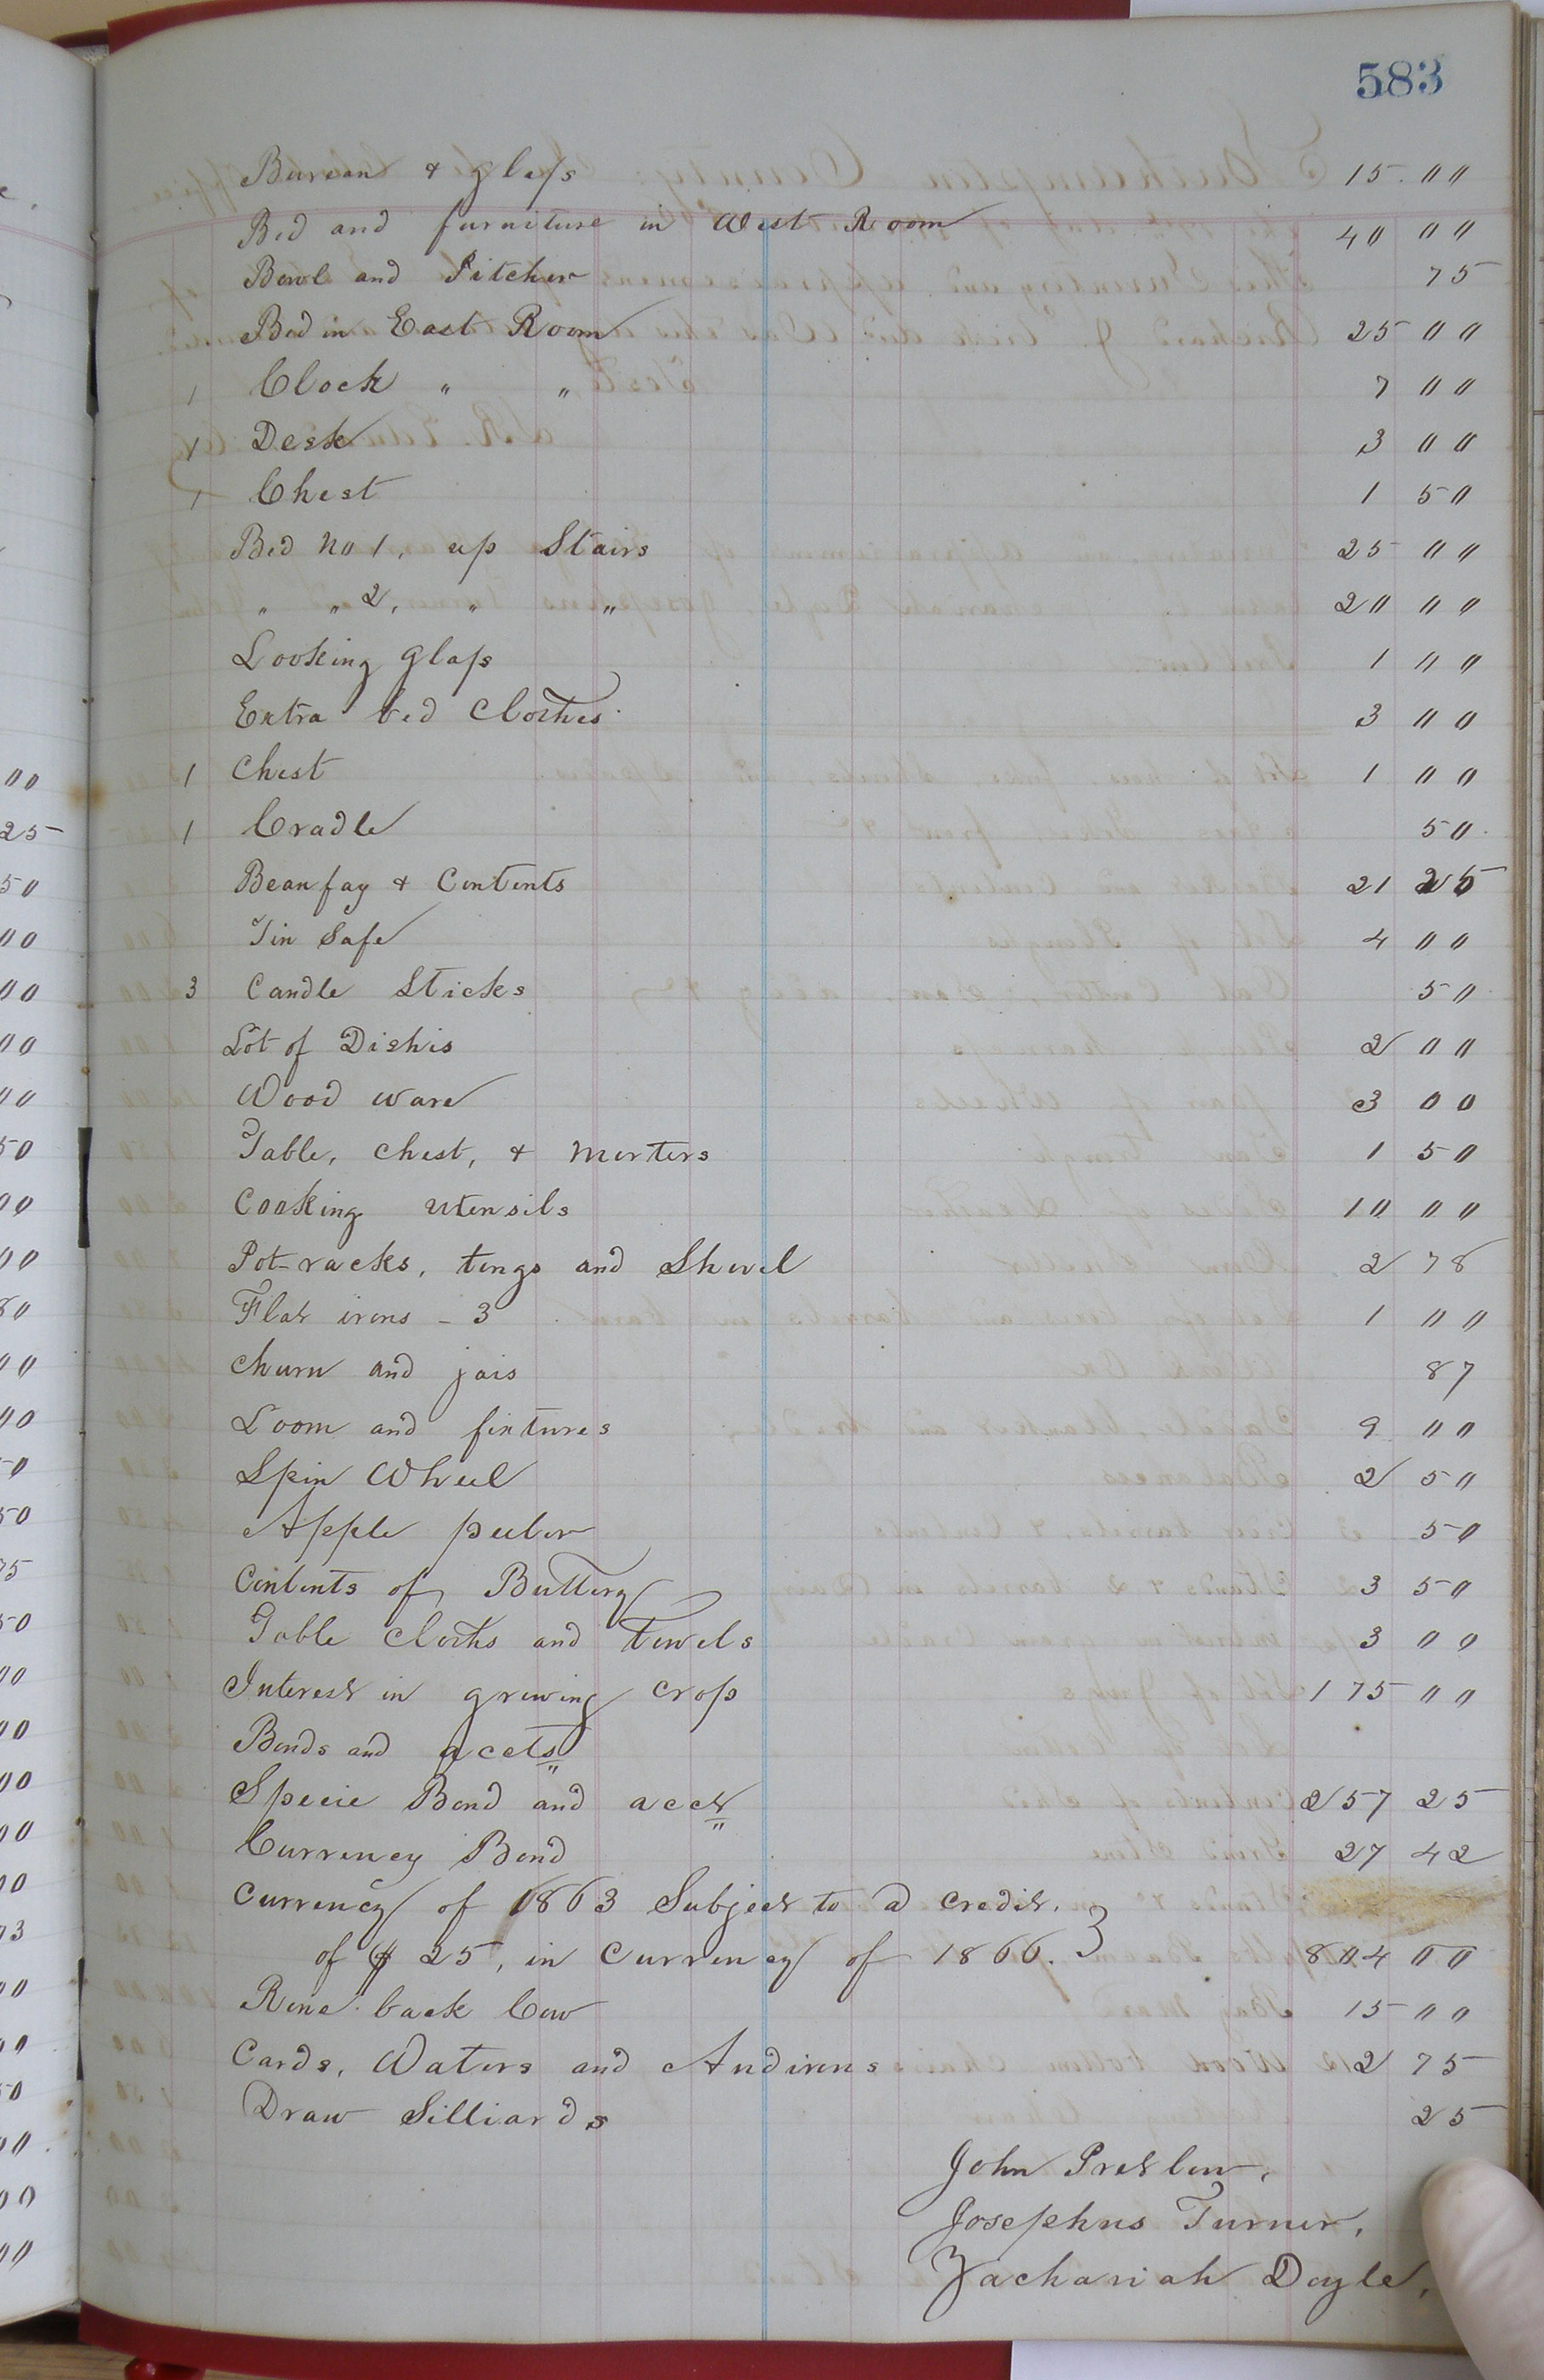 583
Bureau & glass 15.00
Bed and furniture in West Room 40 00
Bowl and Pitcher 75
Bed in East Room 25 00
1 Clock " " 7 00
1 Desk 3 00
1 Chest 1 50
Bed No 1, up Stairs 25 00
" " 2, " " 20 00
Looking glass 1 00
Extra bed Clothes 3 00
1 Chest 1 00
1 Cradle 50
Beaufay & Contents 21 25
Tin Safe 4 00
3 Candle Sticks 50
Lot of Dishis 2 00
Wood ware 3 00
Table, Chest, & morters 1 50
Cooking utensils 10 00
Pot-racks, tongs and Shovel 2 78
Flat irons - 3 1 00
Churn and jars 87
Loom and fixtures 9 00
Spin Wheel 2 50
Apple peeler 50
Contents of Buttery 3 50
Table Cloths and Towels 3 00
Interest in growing crop 175 00
Bonds and accts
Specie Bond and acct 257 25
Currency Bond 27 42
Currency of 1863 Subject to a credit.
of $ 25, in Currency of 1866. 804 00
Rone back Cow 15 00
Cards, Waters and Andirons 2 75
Draw Silliards 25
John Preslar,
Josephus Turner,
Zachariah Doyle,